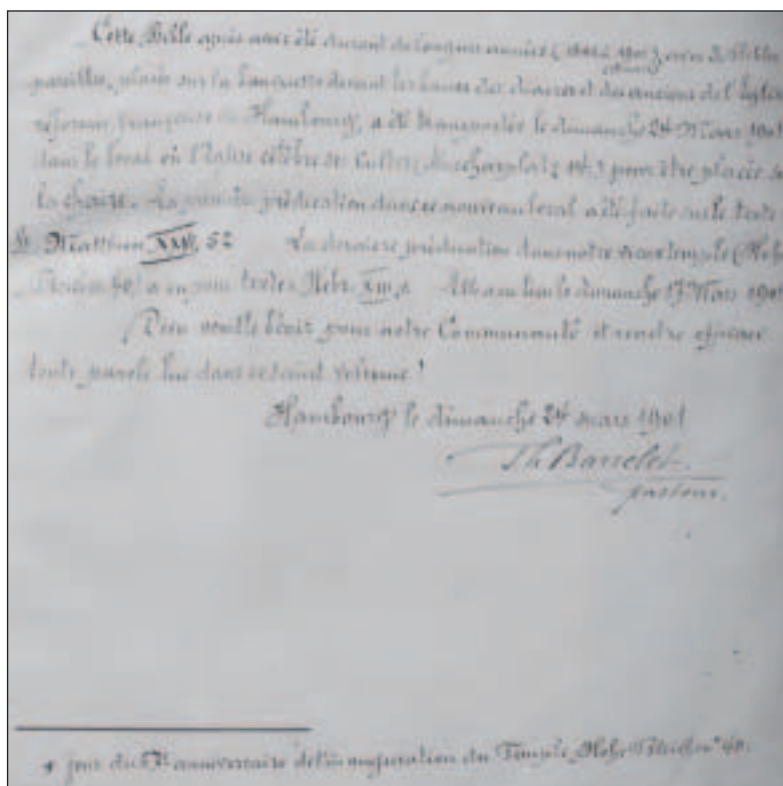 Cette Bible après avoir été durant de longues années
pareille, placée sur la banquette devant les bancs des diacres et des anciens de l'Eglise
réformée française de Hambourg, a été transportée le dimanche 24 Mars 1901
dans le local où l'Eglise célèbre ses cultes pour être placée
la chaire. La première prédication dans ce nouveau local a été faite sur le texte
S. Matthieu 52 La dernière prédication dans notre vieux temple
a eu pour texte Hebr. XIII, 8 le dimanche 17 Mars 1901
Dieu veuille bénir pour notre Communauté et rendre efficace
toute parole lue dans ce saint volume !
Hambourg le dimanche 24 mars 1901
Th Barrelet.
pasteur.
jour du anniversaire de l'inauguration du Temple, Hohe Bleichen 40.